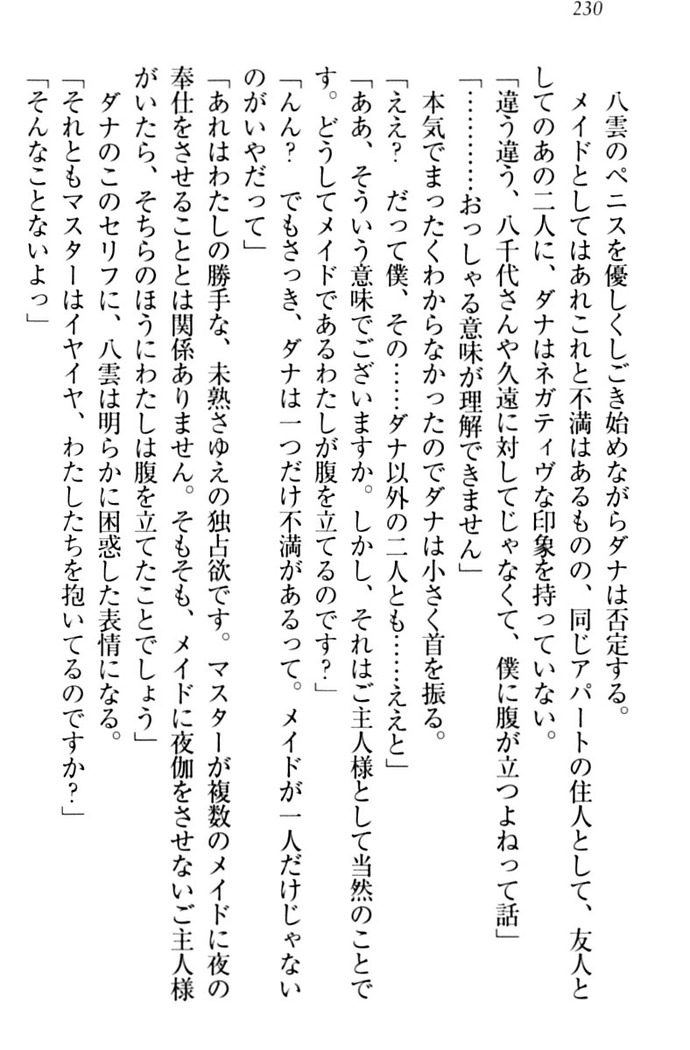 230
八雲のペニスを優しくしごき始めながらダナは否定する。
メイドとしてはあれこれと不満はあるものの、同じアパートの住人として、友人と
してのあの二人に、ダナはネガティヴな印象を持っていない。
「違う違う、八千代さんや久遠に対してじゃなくて、僕に腹が立つよねって話」
「…………おっしゃる意味が理解できません」
本気でまったくわからなかったのでダナは小さく首を振る。
「ええ？　だって僕、その……ダナ以外の二人とも……ええと」
「ああ、そういう意味でございますか。しかし、それはご主人様として当然のことで
す。どうしてメイドであるわたしが腹を立てるのです？」
「んん？　でもさっき、ダナは一つだけ不満があるって。メイドが一人だけじゃない
のがいやだって」
「あれはわたしの勝手な、未熟さゆえの独占欲です。マスターが複数のメイドに夜の
奉仕をさせることとは関係ありません。そもそも、メイドに夜伽をさせないご主人様
がいたら、そちらのほうにわたしは腹を立てたことでしょう」
ダナのこのセリフに、八雲は明らかに困惑した表情になる。
「それともマスターはイヤイヤ、わたしたちを抱いてるのですか？」
「そんなことないよっ」